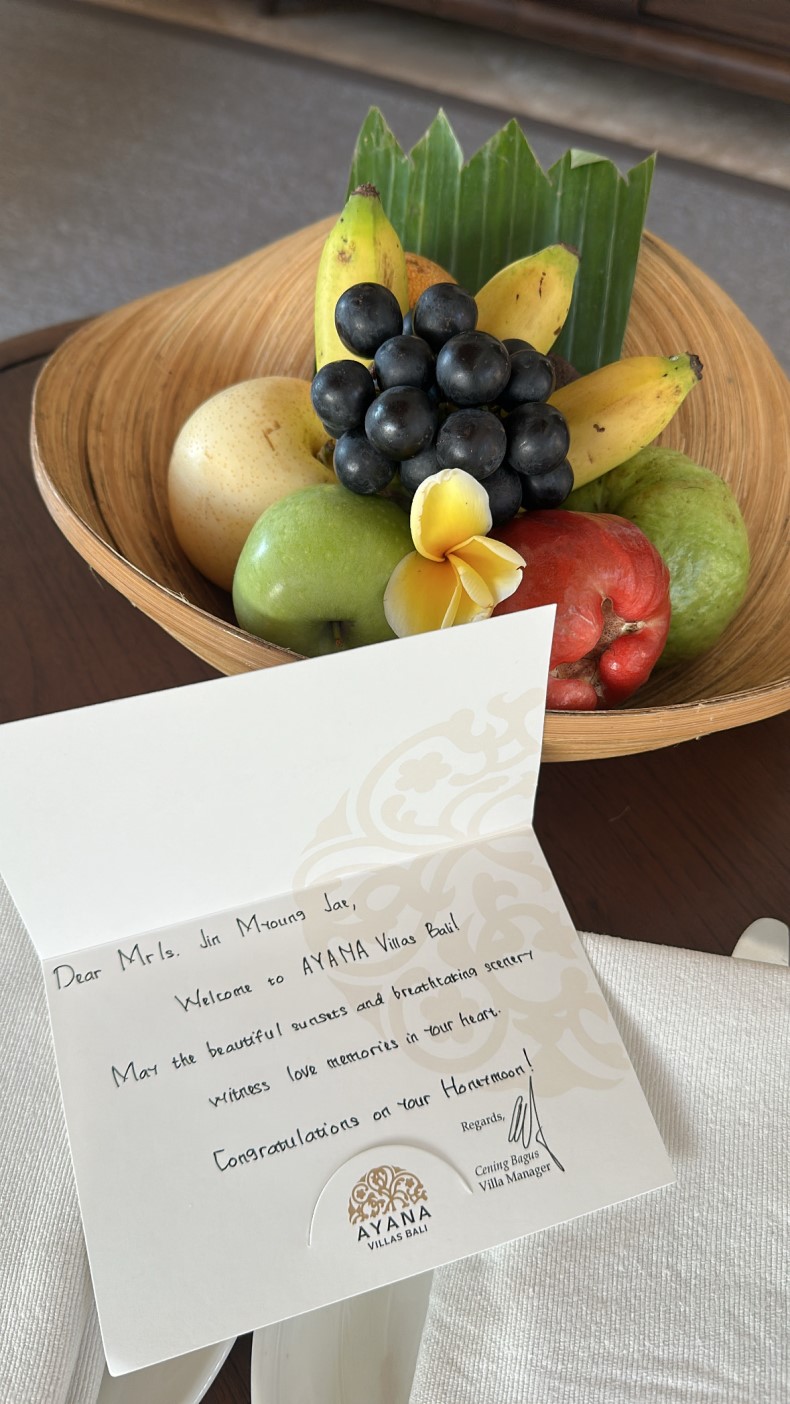 Dear Mr/s. Jin Myoung Jae,
Welcome to AYANA Villas Bali!
May the beautiful sunsets and breathtaking scenery
witness love memories in your heart.
Congratulations on your Honeymoon!
Regards,
Cening Bagus
Villa Manager
AYANA
VILLAS BALI